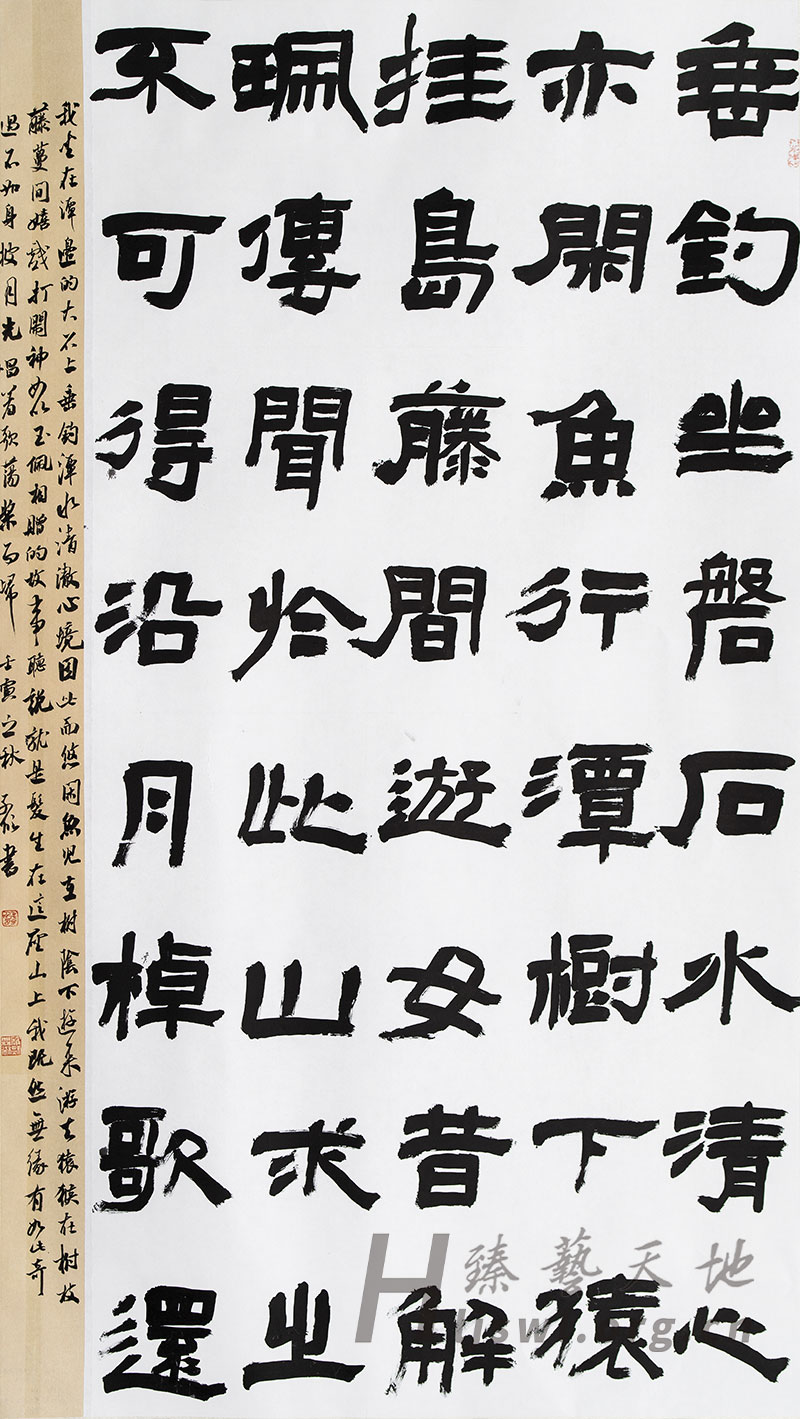 垂釣坐磐石水清心
亦閑魚行潭樹下猿
挂島藤間遊女昔解
珮傳聞於此山求之
不可得沿月棹歌還
我坐在潭邊的大石上垂釣潭水清澈心境因此而悠閑魚兒在樹陰下遊來游去猿猴在樹枝
藤蔓間嬉戲打鬧神女以玉佩相贈的故事聽說就是髮生在這座山上我既然無緣有如此奇
遇不如身披月光唱着歌蕩槳而歸 壬寅之秋 書
臻藝天地